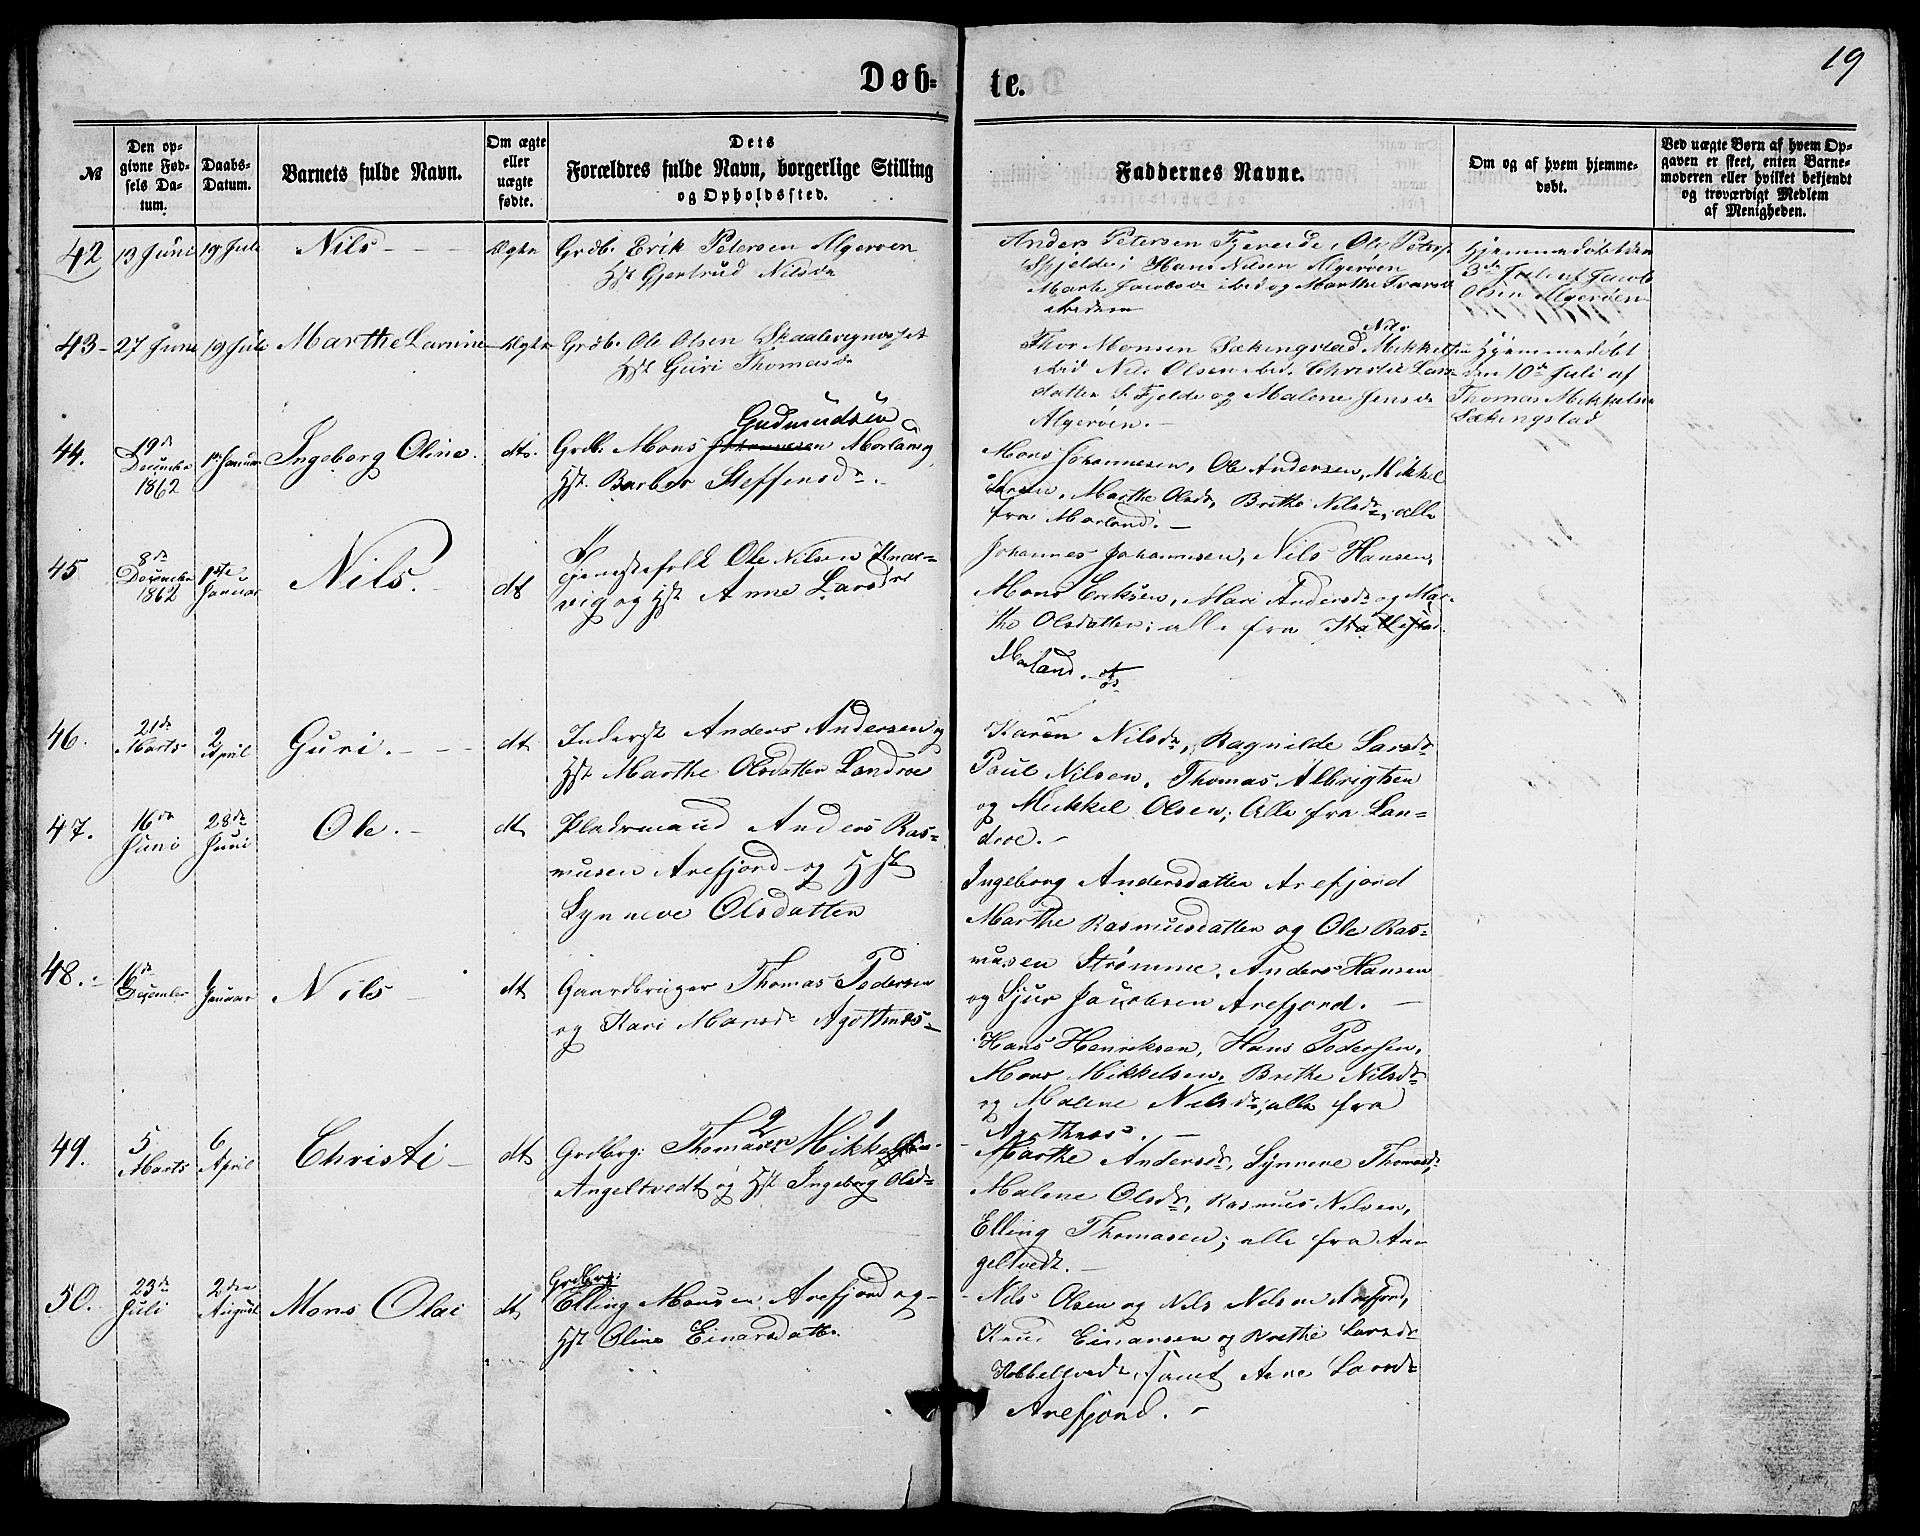 Døb-
te.
19
№
Den op-
givne Fød-
sels Da-
tum.
Daabs-
Datum.
Barnets fulde Navn.
Om ægte
eller
uægte
fødte.
Dets
Forældres fulde Navn, borgerlige Stilling
og Opholdssted.
Faddernes Navne.
Om og af hvem hjemme-
døbt.
Ved uægte Børn af hvem Op-
gaven er skeet, enten Barne-
moderen eller hvilket bekjendt
og troværdigt Medlem
af Menigheden.
42
13 Juni
19 Juli
Nils
Ægte
Grdb. Erik Petersen Algerøen
Hst Gjertrud Nilsdr
Anders Petersen Fjereide, Ole Peters
Spjelde, Hans Nilsen Algerøen
Marte Jacobsdr ibid og Marthe
ibidem
Hjemmedøbt den
3de Juli af Jacob
Olsen Algerøen
43
27 Juni
19 Juli
Marthe Lavine
Ægte
Grdb. Ole Olsen Skaalevignesset
Hst Guri Thomasdr
Nils
Thor Monsen Sækingstad Mikkelsen
ibid Nils Olsen ibd. Christie Lars
datter S. Fjelde og Malene Jensdr
Algerøen.
Hjemmedøbt
den 10de Juli af
Thomas Mikkelsen
Sækingstad
44.
19de
December
1862
1ste Januar
Ingeborg Oline.
dto.
Gudmundsen
Grdb. Mons Johannesen Morland og
Hst. Barbro Steffensdr.
Mons Johannesen, Ole Andersen, Mikkel
Larsen, Marthe Olsdr, Brithe Nilsdr, alle
fra Morland.
45
8de
December
1862
1ste
Januar
Nils.
dt
Tjenestefolk Ole Nilsen Knar-
vig og Hst Anne Larsdr
Johannes Johannesen, Nils Hansen,
Mons Eriksen, Mari Andersdr og Mar-
the Olsdatter; alle fra
Morland.
46.
21de
Marts
2
April
Guri.
dt
Inderst Anders Andersen og
Hst Marthe Olsdatter Landroe
Karen Nilsdr, Ragnilde Larsdr
Poul Nilsen, Thomas Albrigtsen
og Mikkel Olsen; Alle fra Lan-
droe.
47.
16de
Juni
28de
Juni
Ole.
dt
Pladsmand Anders Ras-
musen Arefjord og Hst
Synneve Olsdatter
Ingeborg Andersdatter Arefjord
Marthe Rasmusdatter og Ole Ras-
musen Strømme, Anders Hansen
og Sjur Jacobsen Arefjord.
48.
16de
Dezember
Januar
Nils
dt
Gaardbruger Thomas Pedersen
og Kari Monsdr Agothnes
Hans Henriksen, Hans Pedersen,
Mons Mikkelsen, Brithe Nilsdr
og Malene Nilsdr; alle fra
Agothnes.
49.
5
Marts
6
April
Christi
dt
2 1
Grdbrg: Thomasen Mikkel
Angeltvedt og Hst Ingeborg Olsdr
Marthe Andersdr, Synneve Thomasdr
Malene Olsdr, Rasmus Nilsen,
Elling Thomasen; alle fra An
geltvedt.
50.
23de
Juli
2den
August
Mons Olai
dt
Grdbrg:
Elling Monsen Arefjord og
Hst Oline Einarsdatter
Nils Olsen og Nils Nilsen Arefjord,
Knud Einarsen og Brethe Larsdr
Kobbeltvedt, samt Anne Larsdr
Arefjord.